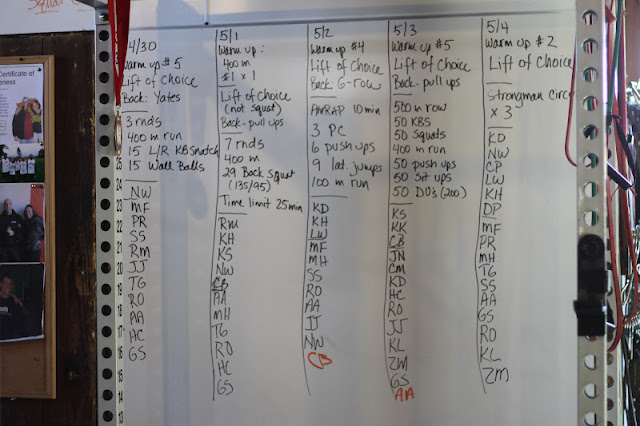 Certificate of
4/30
Warm up #5
Lift of Choice
Back: Yates
3 rnds
400 m run
15 L/R KB snatch
15 Wall Balls
NW
MF
PR
SS
RM
JJ
TG
RO
AA
HC
GS
5/1
Warm up:
400 m
#1 x 1
Lift of Choice
(not squat)
Back- pull ups
7 rnds
400 m
29 Back Squat
(135/95)
Time limit 25 min
RM
KH
KS
NW
CB
AA
MH
TG
RO
HC
GS
5/2
Warm up #4
Lift of Choice
Back: G-row
AMRAP 10 min
3 PC
6 push ups
9 lat. jumps
100 m run
KD
KH
LW
MF
MH
SS
RO
AA
JJ
NW
CB
5/3
Warm up #5
Lift of Choice
Back- pull ups
500 m row
50 KBS
50 Squats
400 m run
50 push ups
50 Sit ups
50 DU's (200)
KS
KK
CB
JN
CM
KD
HC
RO
JJ
KL
ZM
GS
AA
5/4
Warm up #2
Lift of Choice
Strongman Circ
x 3
KD
NW
CP
LW
KH
DP
MF
PR
MH
TG
SS
AA
GS
RO
KL
ZM
25
24
23
22
21
20
19
18
17
16
15
14
13